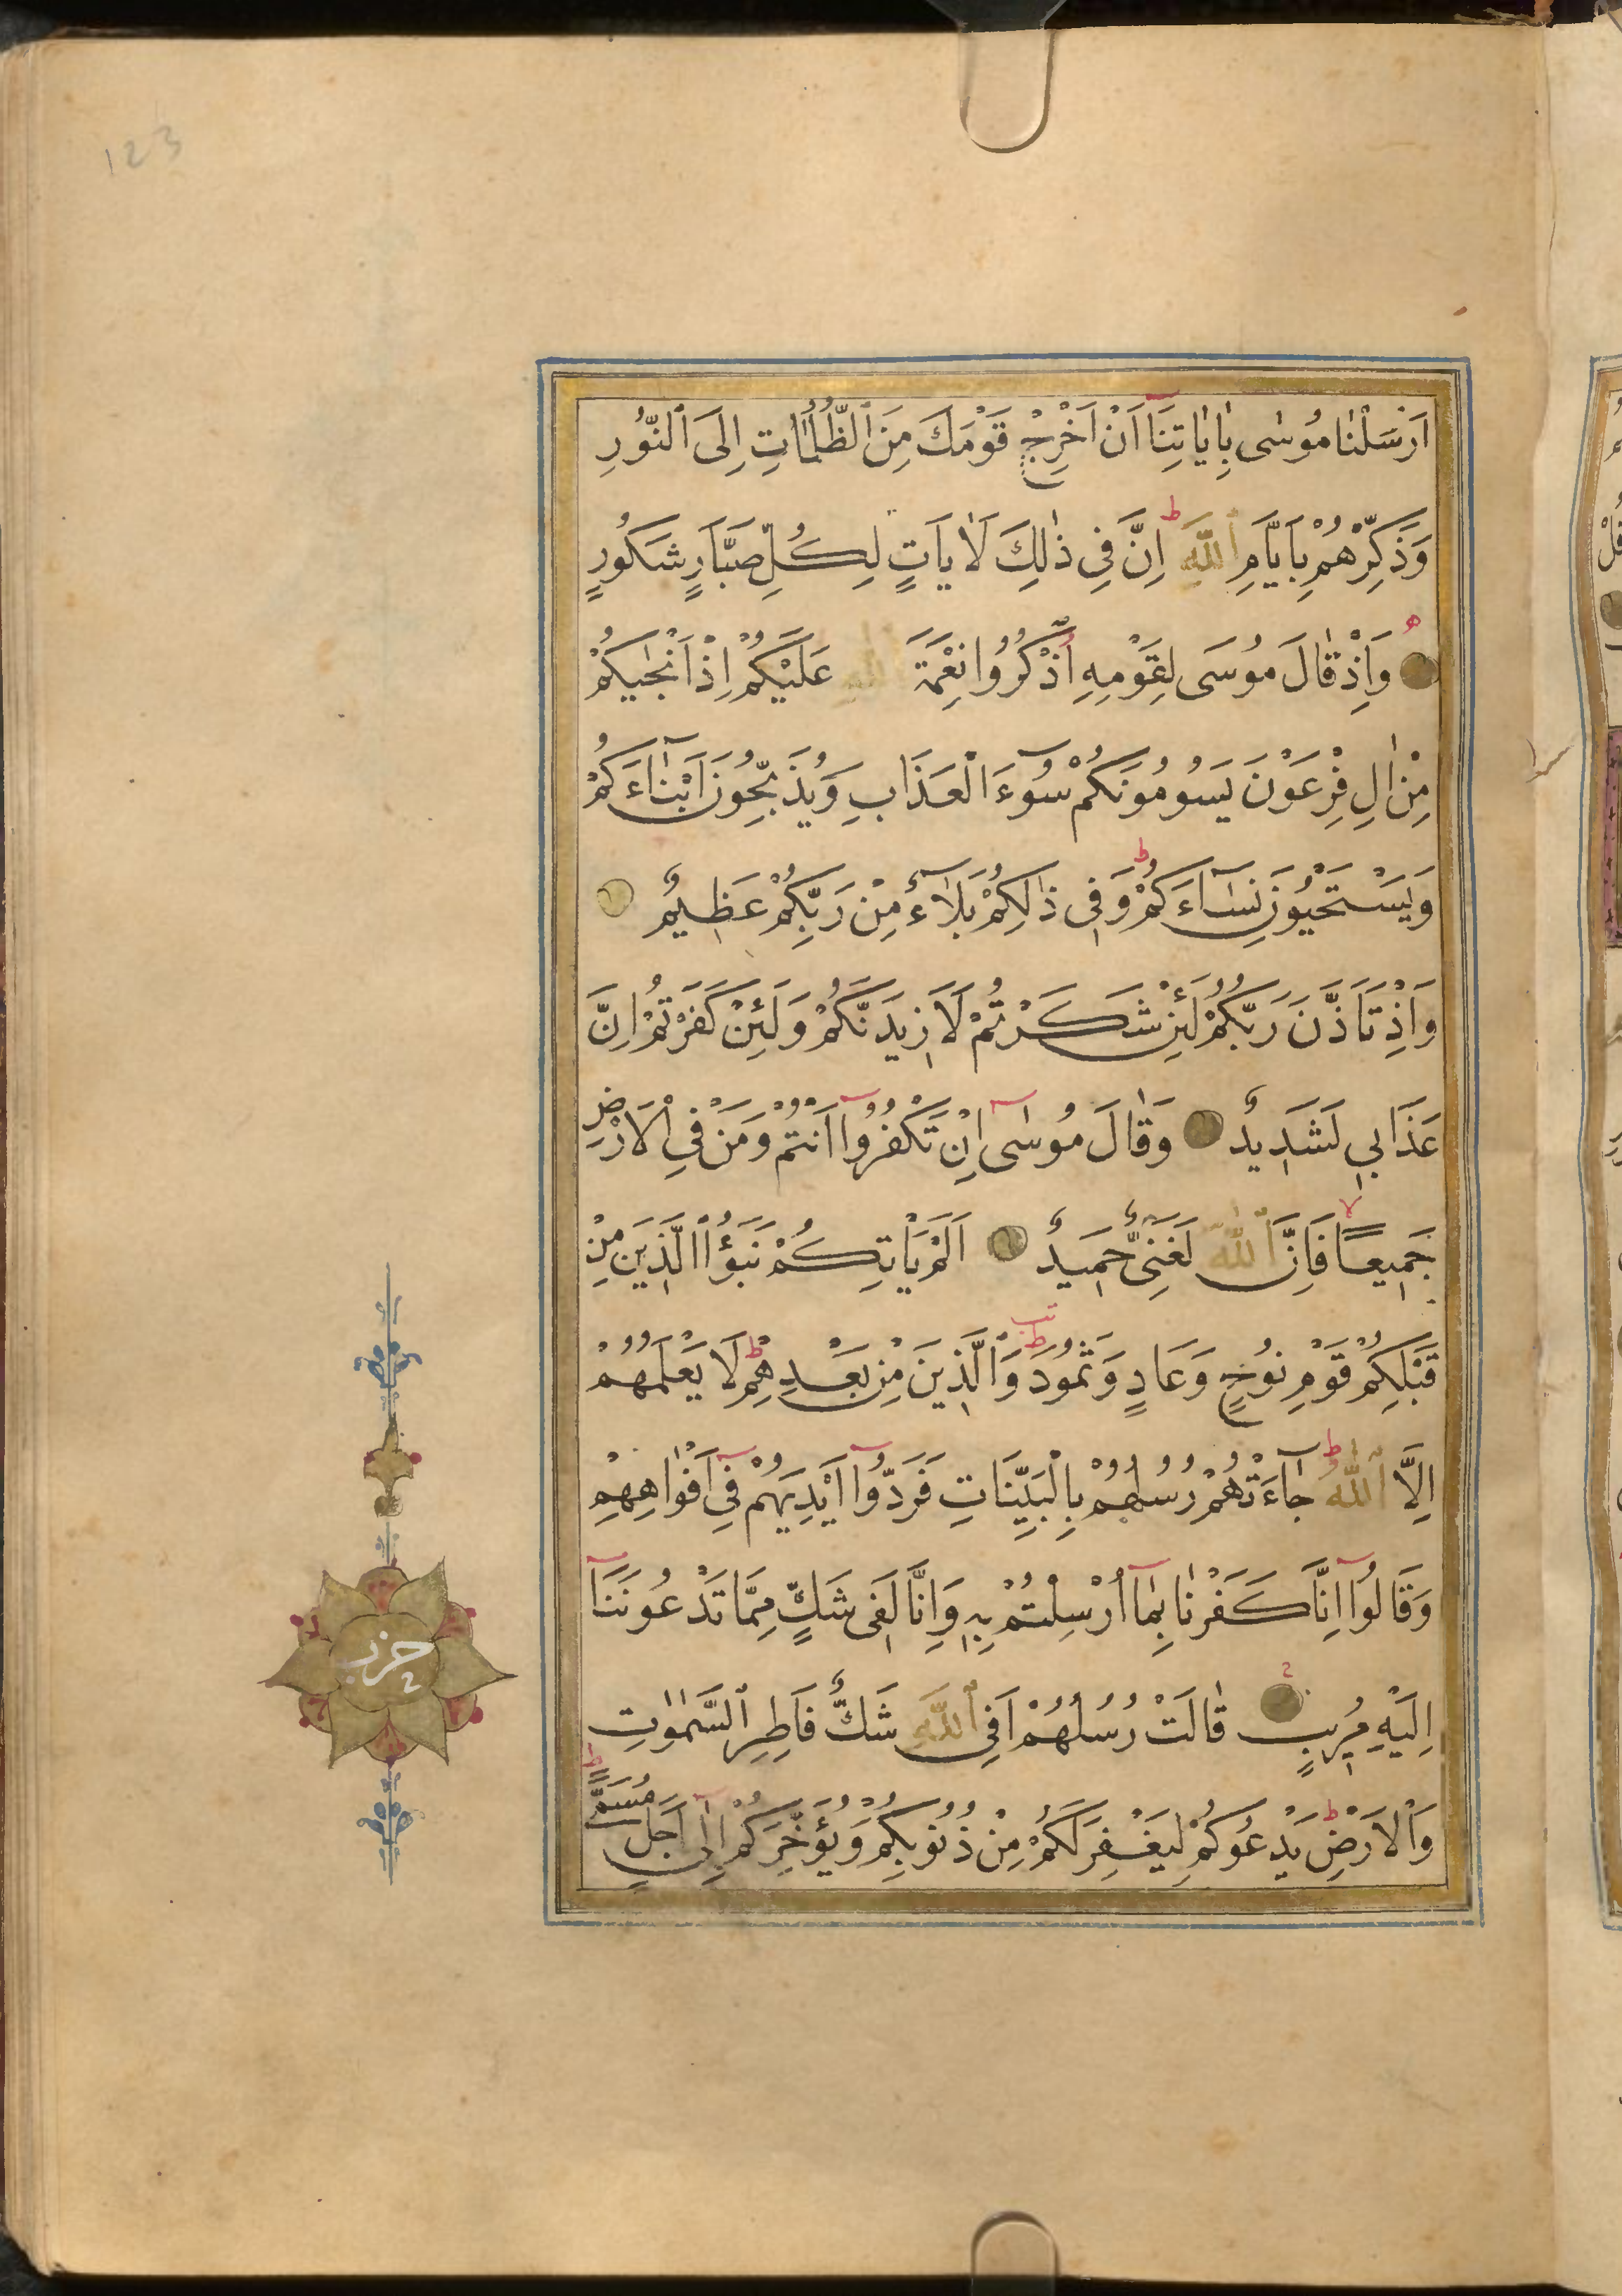 123
اَرْسَلْنٰا مُوسٰى بِاٰيٰاتِنَٓا اَنْ اَخْرِجْ قَوْمَكَ مِنَ ٱلظُّلُمٰاتِ اِلَى ٱلنُّورِ
وَذَكِّرْهُمْ بِاَيَّامِ ٱللّٰهِ ط اِنَّ فِى ذٰلِكَ لَاٰيَاتٍ لِكُلِّ صَبَّارٍ شَكُورٍ
وَاِذْ قٰالَ مُوسَى لِقَوْمِهِ ٱذْكُرُوا نِعْمَةَ ٱللّٰهِ عَلَيْكُمْ اِذْ اَنْجٰيكُمْ
مِنْ اٰلِ فِرْعَوْنَ يَسُومُونَكُمْ سُوٓءَ الْعَذَابِ وَيُذَبِّحُونَ اَبْنَٓاءَكُمْ
وَيَسْتَحْيُونَ نِسَٓاءَكُمْ ط وَفِى ذٰلِكُمْ بَلَٓاءٌ مِنْ رَبِّكُمْ عَظِيمٌ
وَاِذْ تَاَذَّنَ رَبُّكُمْ لَئِنْ شَكَرْتُمْ لَاَزِيدَنَّكُمْ وَلَئِنْ كَفَرْتُمْ اِنَّ
عَذَابِى لَشَدِيدٌ وَقٰالَ مُوسٰٓى اِنْ تَكْفُرُوٓا اَنْتُمْ وَمَنْ فِى الْاَرْضِ
جَمِيعًا لا فَاِنَّ ٱللّٰهَ لَغَنِىٌّ حَمِيدٌ اَلَمْ يَاْتِكُمْ نَبَؤُا الَّذِينَ مِنْ
قَبْلِكُمْ قَوْمِ نُوحٍ وَعَادٍ وَثَمُودَ ط وَٱلَّذِينَ مِنْ بَعْدِهِمْ ط لَا يَعْلَمُهُمْ
اِلَّا ٱللّٰهُ ط جَٓاءَتْهُمْ رُسُلُهُمْ بِالْبَيِّنَاتِ فَرَدُّوٓا اَيْدِيَهُمْ فِٓى اَفْوَاهِهِمْ
وَقَالُوٓا اِنَّا كَفَرْنٰا بِمَٓا اُرْسِلْتُمْ بِهٖ وَاِنَّا لَفِى شَكٍّ مِمَّا تَدْعُونَنَٓا
اِلَيْهِ مُرِيبٍ قٰالَتْ رُسُلُهُمْ اَفِى ٱللّٰهِ شَكٌّ فَاطِرِ ٱلسَّمٰوٰتِ
وَالْاَرْضِ ط يَدْعُوكُمْ لِيَغْفِرَ لَكُمْ مِنْ ذُنُوبِكُمْ وَيُؤَخِّرَكُمْ اِلٰٓى اَجَلٍ مُسَمًّى ط
حزب